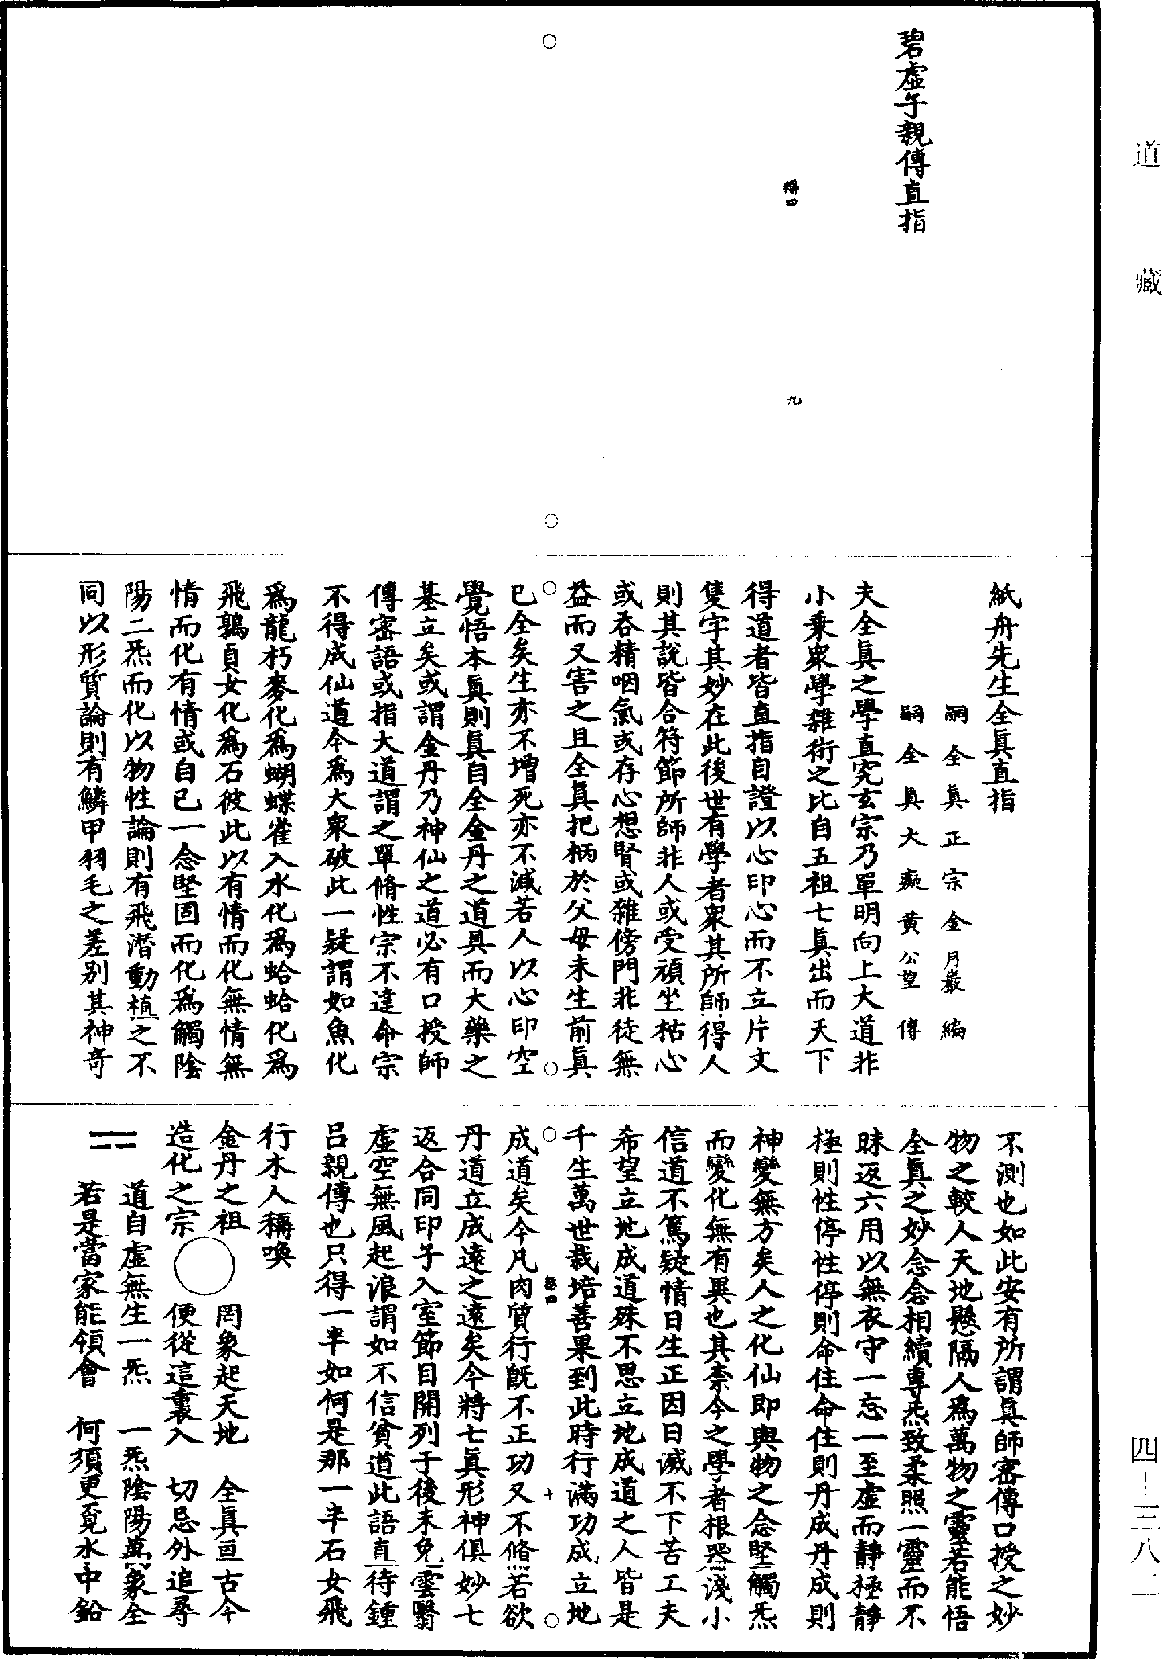 道藏
碧虛子親傳直指
得四
九
紙舟先生全眞直指
嗣全眞正宗金月巖編
嗣全眞大癡黃公望傳
夫全眞之學直究玄宗乃單明向上大道非
小乘衆學雜術之比自五祖七眞出而天下
得道者皆直指自證以心印心而不立片文
隻字其妙在此後世有學者衆其所師得人
則其說皆合符節所師非人或受頑坐枯心
或吞精咽氣或存心想腎或雜傍門非徒無
益而又害之且全眞把柄於父母未生前眞
已全矣生亦不增死亦不減若人以心印空
覺悟本眞則眞自全金丹之道具而大藥之
基立矣或謂金丹乃神仙之道必有口授師
傳密語或指大道謂之單脩性宗不達命宗
不得成仙道今爲大衆破此一疑謂如魚化
爲龍朽麥化爲蝴蝶雀入水化爲蛤蛤化爲
飛鶉貞女化爲石彼此以有情而化無情無
情而化有情或自已一念堅固而化爲觸陰
陽二炁而化以物性論則有飛潛動植之不
同以形質論則有鱗甲羽毛之差別其神奇
不測也如此安有所謂眞師密傳口授之妙
物之較人天地懸隔人爲萬物之靈若能悟
全眞之妙念念相續專炁致柔照一靈而不
昧返六用以無衣守一忘一至虛而靜極靜
極則性停性停則命住命住則丹成丹成則
神變無方矣人之化仙即與物之念堅觸炁
而變化無有異也其柰今之學者根器淺小
信道不篤疑情日生正因日滅不下苦工夫
希望立地成道殊不思立地成道之人皆是
千生萬世栽培善果到此時行滿功成立地
得四
十
成道矣今凡肉質行旣不正功又不脩若欲
丹道立成遠之遠矣今將七眞形神俱妙七
返合同印子入室節目開列于後未免雲翳
虛空無風起浪謂如不信貧道此語直待鍾
呂親傳也只得一半如何是那一半石女飛
行木人稱喚
金丹之祖　罔象起天地　全眞亘古今
造化之宗　便從這裏入　切忌外追尋
道自虛無生一炁　一炁陰陽萬象全
若是當家能領會　何須更覓水中鉛
四-三八二